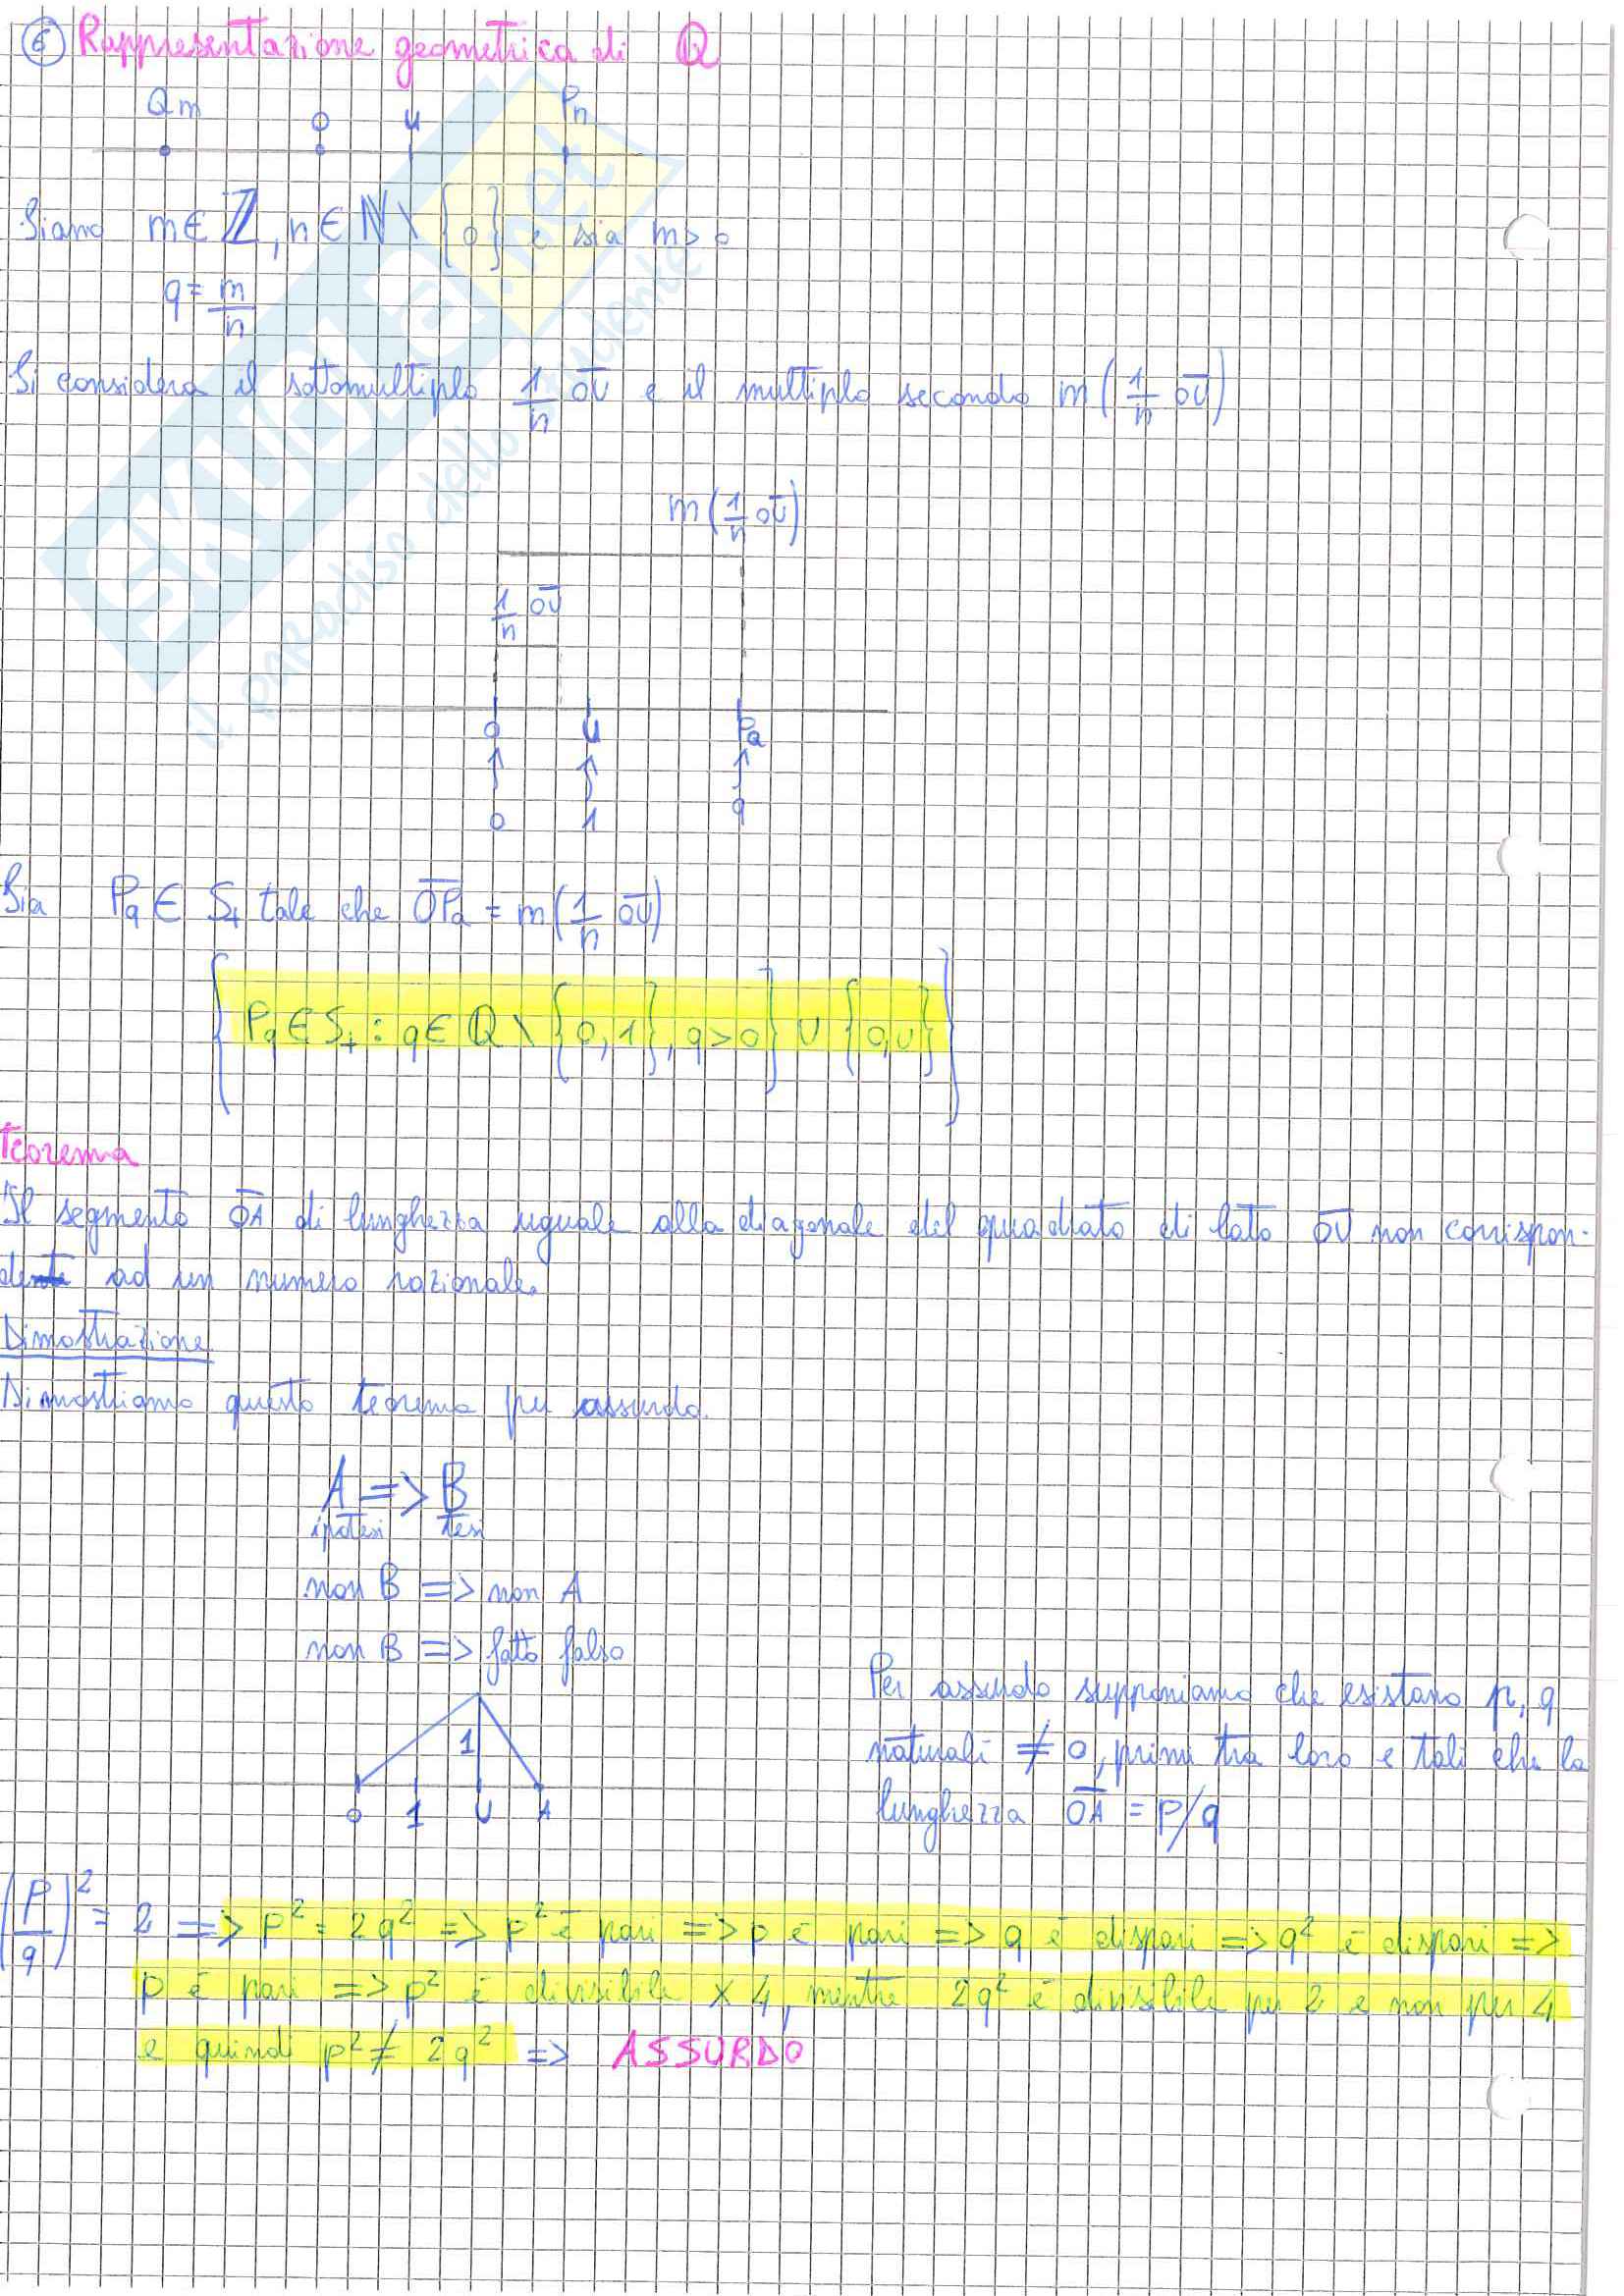 6 Rappresentazione geometrica di Q
Qm O U Pn
Siano m∈ℤ, n∈ℕ\{0} e sia m>0
q = m/n
Si considera il sottomultiplo 1/n OU e il multiplo secondo m(1/n OU)
m(1/n OU)
1/n OU
O U Pq
0 1 q
Sia Pq ∈ S+ tale che OPq = m(1/n OU)
{Pq ∈ S+ : q∈ℚ\{0,1}, q>0} ∪ {0,U}}
Teorema
Il segmento OA di lunghezza uguale alla diagonale del quadrato di lato OU non corrispon-
de ad un numero razionale.
Dimostrazione
Dimostriamo questo teorema per assurdo.
A => B
ipotesi tesi
non B => non A
non B => fatto falso
Per assurdo supponiamo che esistano p, q
naturali ≠ 0, primi tra loro e tali che la
lunghezza OA = p/q
1
O 1 U A
(p/q)² = 2 => p² = 2q² => p² è pari => p è pari => q è dispari => q² è dispari =>
p è pari => p² è divisibile x 4, mentre 2q² è divisibile per 2 e non per 4
e quindi p² ≠ 2q² => ASSURDO
SKUOLA.net
il paradiso dello studente